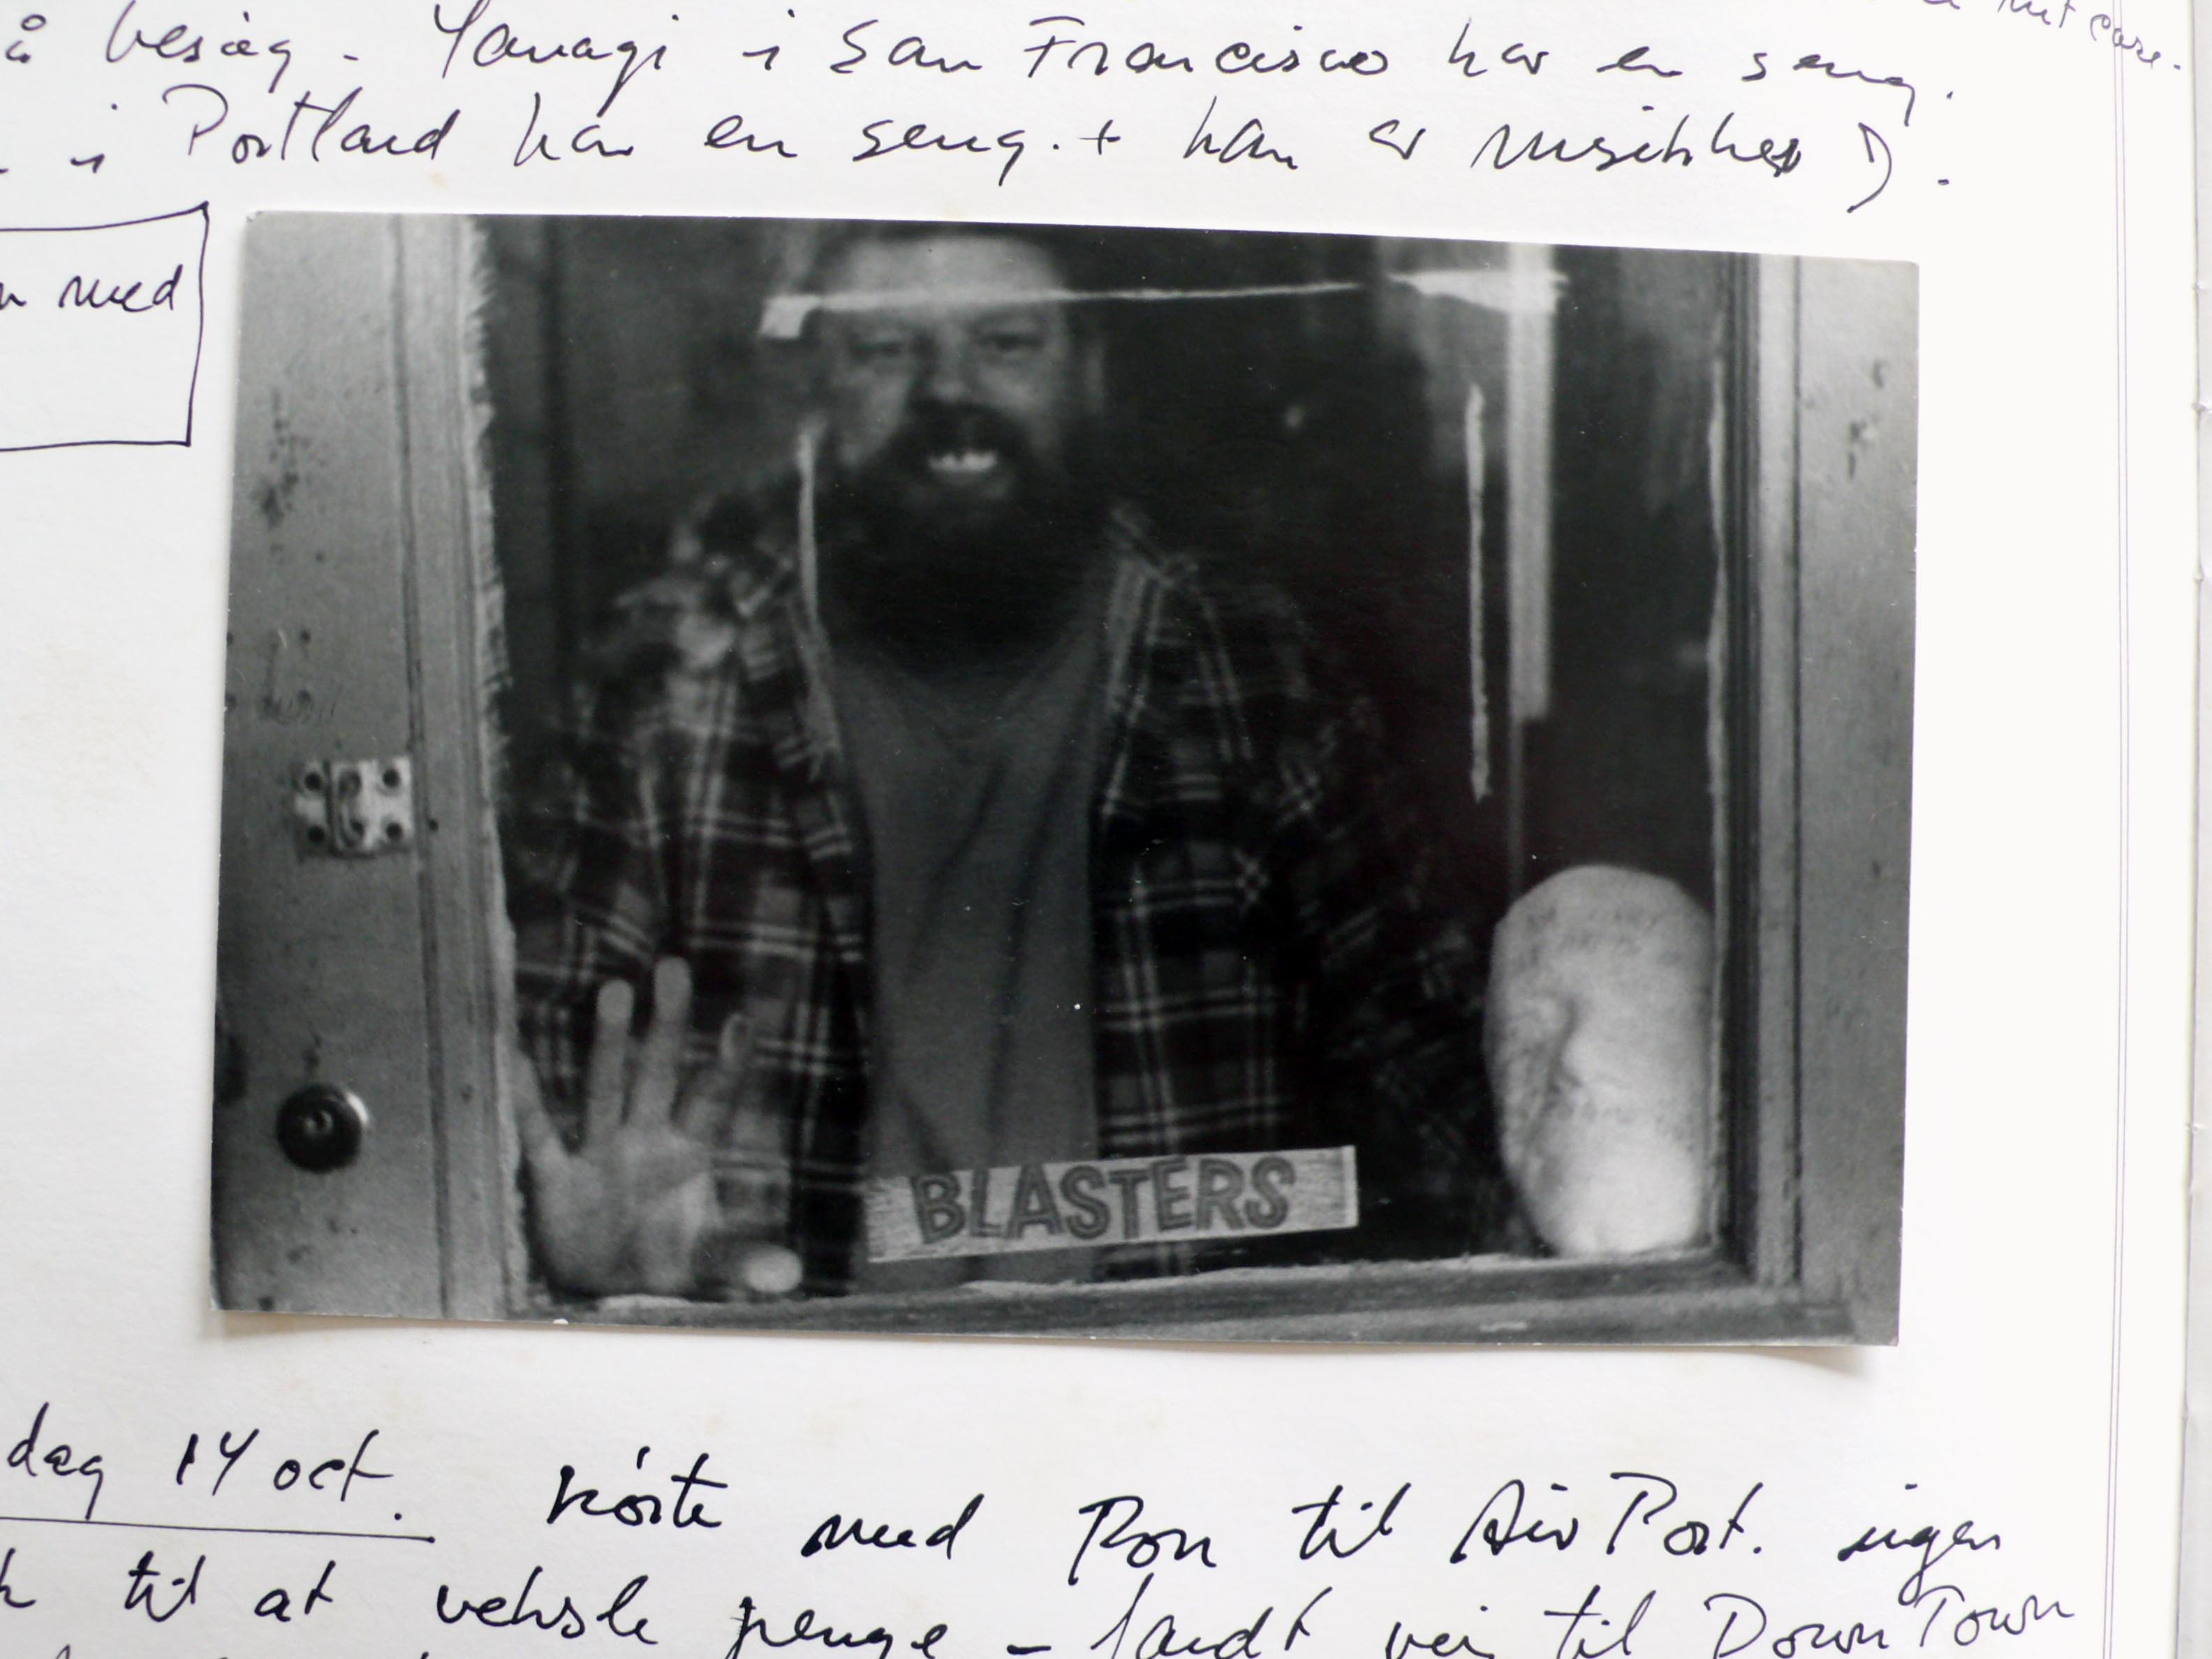 å besøg - Yanagi i San Francisco har en seng.
i Portland har en seng. + han er musikker).
med
BLASTERS
dag 14 oct. kørte med Ron til AirPort. ingen
til at veksle penge - fandt vej til DownTown